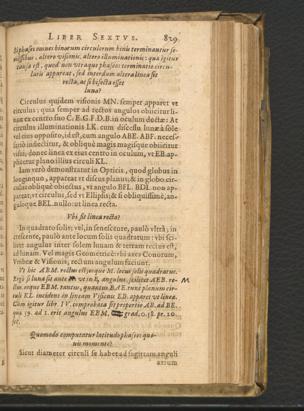 LIBER SEXTVS. 829
si phases omnes binorum circulorum binis terminantur semissibus, altero visionis, altero illuminationis: quæ igitur
causa est, quod non utraque phasis terminatio circularis appareat, sed interdum altera linea sit
recta, ac si bisecta esset
luna?
Circulus quidem visionis MN. semper apparet vt
circulus; quia semper ad rectos angulos obiicitur lineæ ex centro suo C; E.G.F.D.B. in oculum ductæ: At
circulus illuminationis I.K. cum discessu lunæ à sole
vel eius opposito, id est, cum angulo ABE. ABF. necessariò inflectitur, & obliquè magis magisque obiicitur
visui, donec linea ex eius centro in oculum, vt EB. applicetur plano illius circuli KL.
Iam verò demonstratur in Opticis, quod globus in
longinquo, appareat vt discus planus; & in globo circulus obliquè obiectus, vt angulo BFL. BDL non appareat, vt circulus, sed vt Ellipsis; & si obliquissimè, angulóque BEL nullo: vt linea recta.
Vbi sit linea recta?
In quadrato solis; vel, in senescente, paulò vltrà; in
crescente, paulò ante locum solis quadratum: vbi scilicet angulus inter solem lunam & terram rectus est,
ad lunam. Vel magis Geometricè: vbi axes Conorum,
Vmbræ & Visionis, rectum angulum faciunt.
Vt hic ABM. rectus est, estque M. locus solis quadratus.
Ergò si luna sit ante M vt in E, angulus, scilicet AEB. rectus, eoque EBM. tantus, quantus BAE. tunc planum circuli KL incidens in lineam Visionis EB. apparet vt linea.
Cum igitur libr. IV. comprobata sit proportio AB. ad BE.
Quomodo computatur latitudo phaseos quouis momento?
Sicut diameter circuli se habet ad sagittam anguli